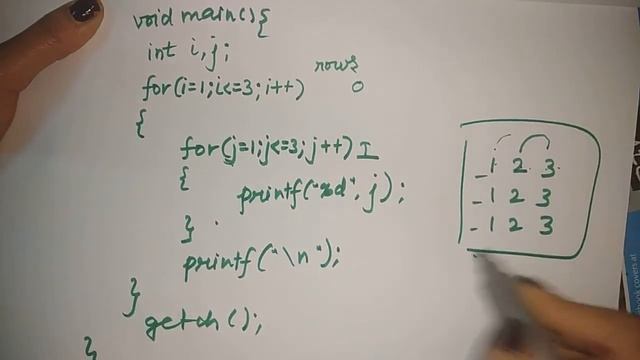 void main(){
int i,j;
for(i=1;i<=3;i++) rows
0
{
for(j=1;j<=3;j++) I
{ printf("%d",j);
}
printf("\n");
}
getch();
}
1 2 3
1 2 3
1 2 3